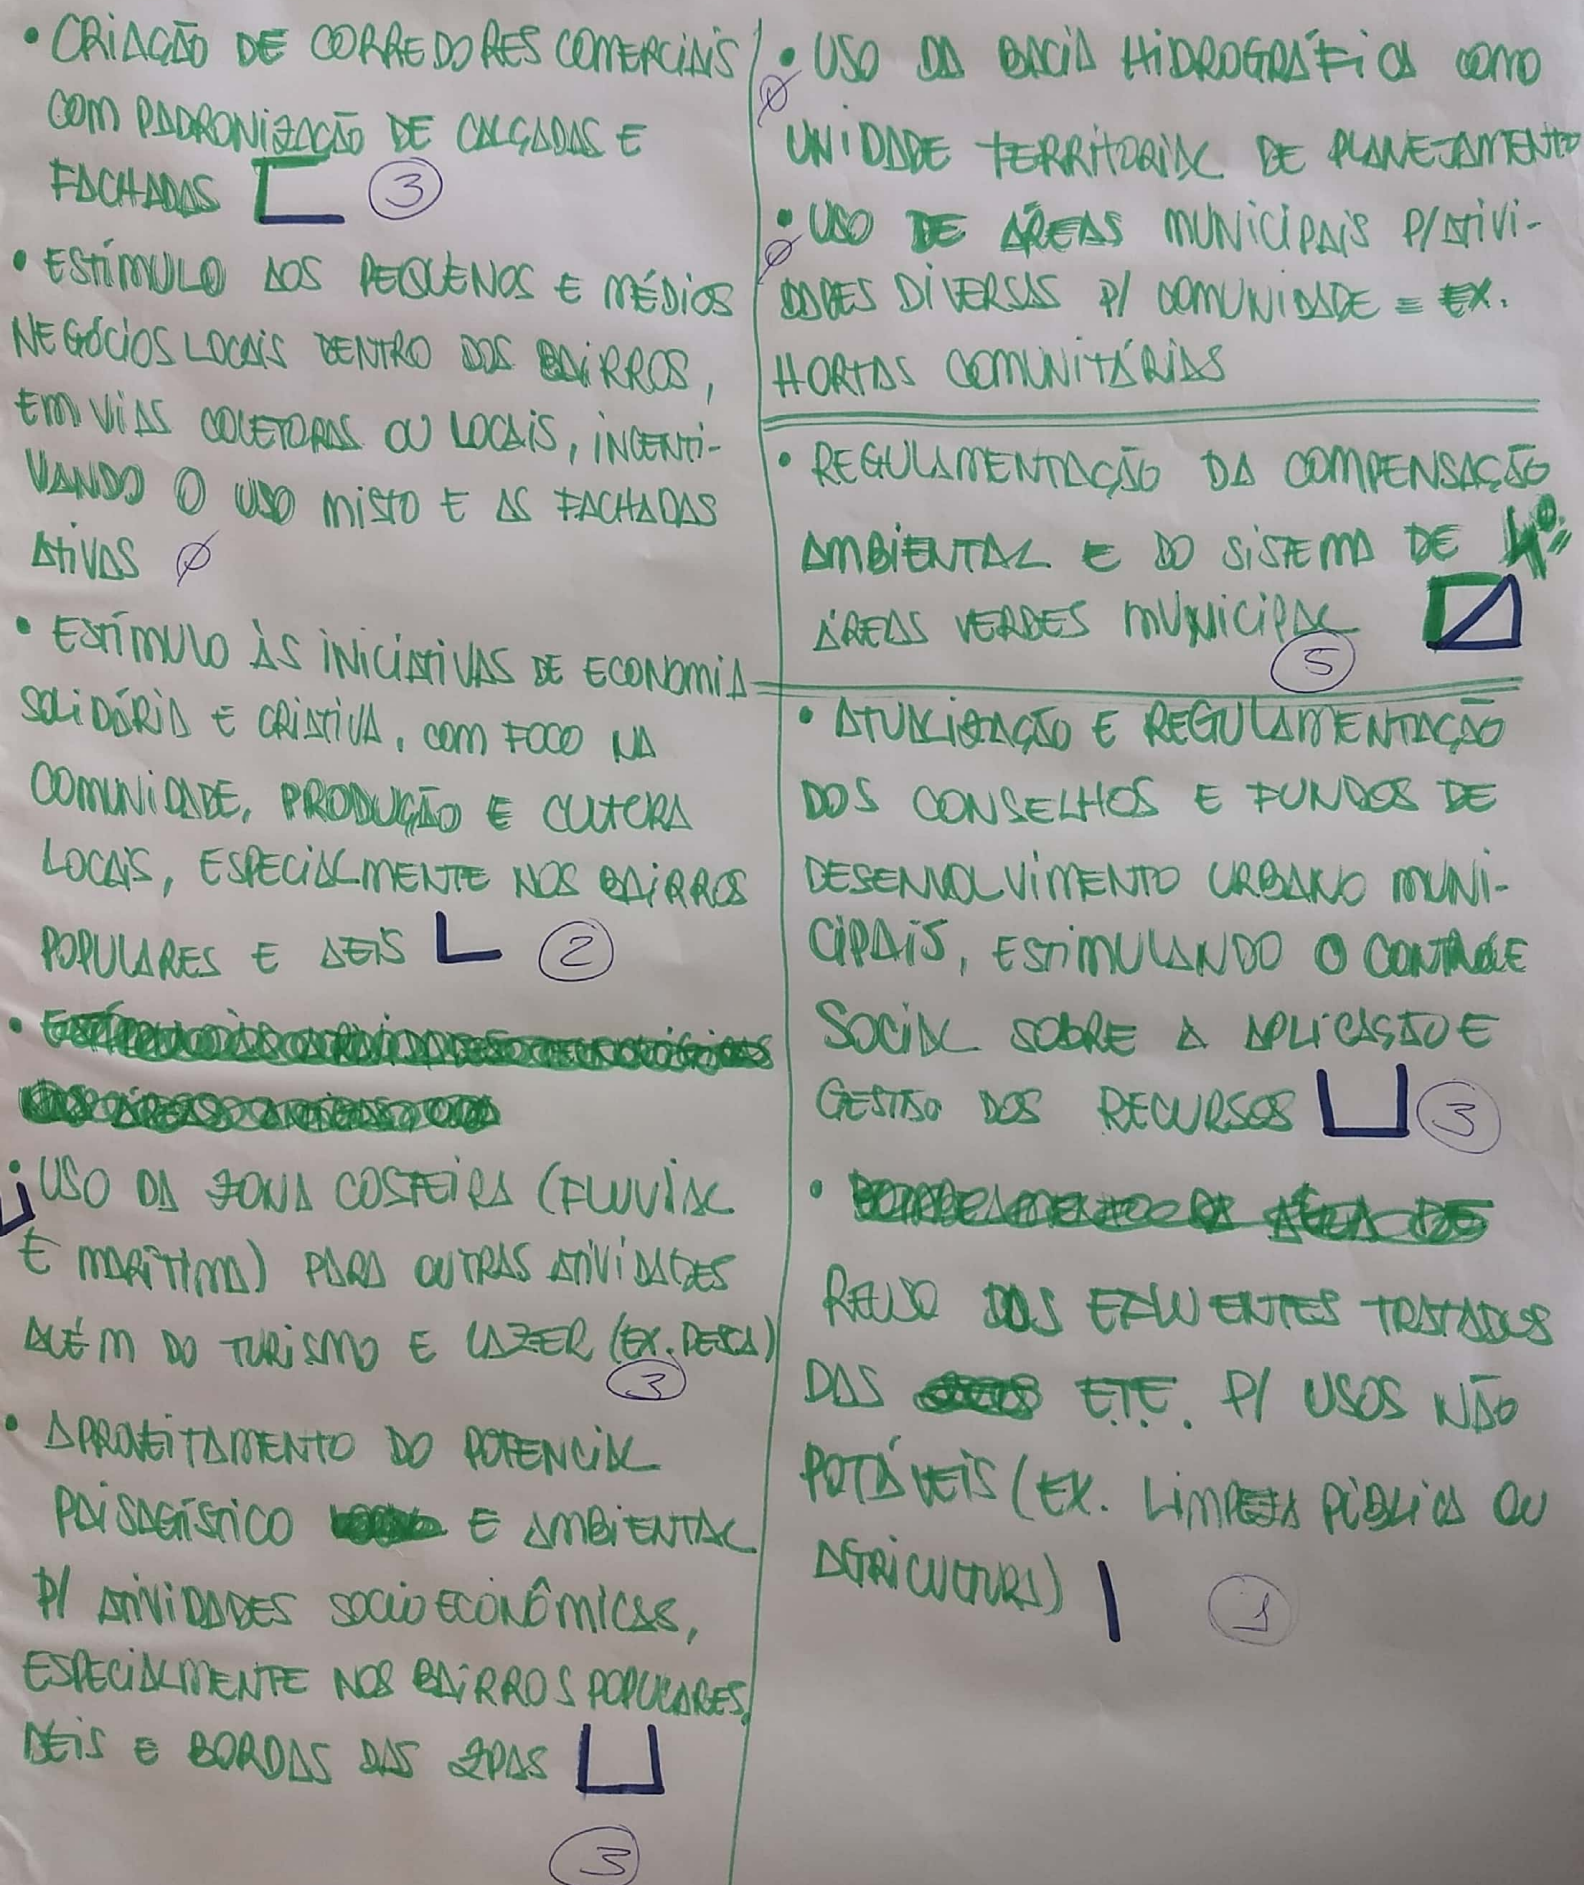 • CRIAÇÃO DE CORREDORES COMERCIAIS
COM PADRONIZAÇÃO DE CALÇADAS E
FACHADAS 3
• ESTÍMULO AOS PEQUENOS E MÉDIOS
NEGÓCIOS LOCAIS DENTRO DOS BAIRROS,
EM VIAS COLETORAS OU LOCAIS, INCENTI-
VANDO O USO MISTO E AS FACHADAS
ATIVAS Ø
• ESTÍMULO ÀS INICIATIVAS DE ECONOMIA
SOLIDÁRIA E CRIATIVA, COM FOCO NA
COMUNIDADE, PRODUÇÃO E CULTURA
LOCAIS, ESPECIALMENTE NOS BAIRROS
POPULARES E AEIS 2
• USO DA ZONA COSTEIRA (FLUVIAL
E MARÍTIMA) PARA OUTRAS ATIVIDADES
ALÉM DO TURISMO E LAZER (EX. PESCA)
3
• APROVEITAMENTO DO POTENCIAL
PAISAGÍSTICO E AMBIENTAL
P/ ATIVIDADES SOCIOECONÔMICAS,
ESPECIALMENTE NOS BAIRROS POPULARES,
AEIS E BORDAS DAS ZPAS
3
• USO DA BACIA HIDROGRÁFICA COMO
Ø
UNIDADE TERRITORIAL DE PLANEJAMENTO
• USO DE ÁREAS MUNICIPAIS P/ ATIVI-
Ø
DADES DIVERSAS P/ COMUNIDADE = EX.
HORTAS COMUNITÁRIAS
• REGULAMENTAÇÃO DA COMPENSAÇÃO
AMBIENTAL E DO SISTEMA DE 4º
ÁREAS VERDES MUNICIPAL
5
• ATUALIZAÇÃO E REGULAMENTAÇÃO
DOS CONSELHOS E FUNDOS DE
DESENVOLVIMENTO URBANO MUNI-
CIPAIS, ESTIMULANDO O CONTROLE
SOCIAL SOBRE A APLICAÇÃO E
GESTÃO DOS RECURSOS 3
•
REUSO DOS EFLUENTES TRATADOS
DAS E.T.E. P/ USOS NÃO
POTÁVEIS (EX. LIMPEZA PÚBLICA OU
AGRICULTURA) 1